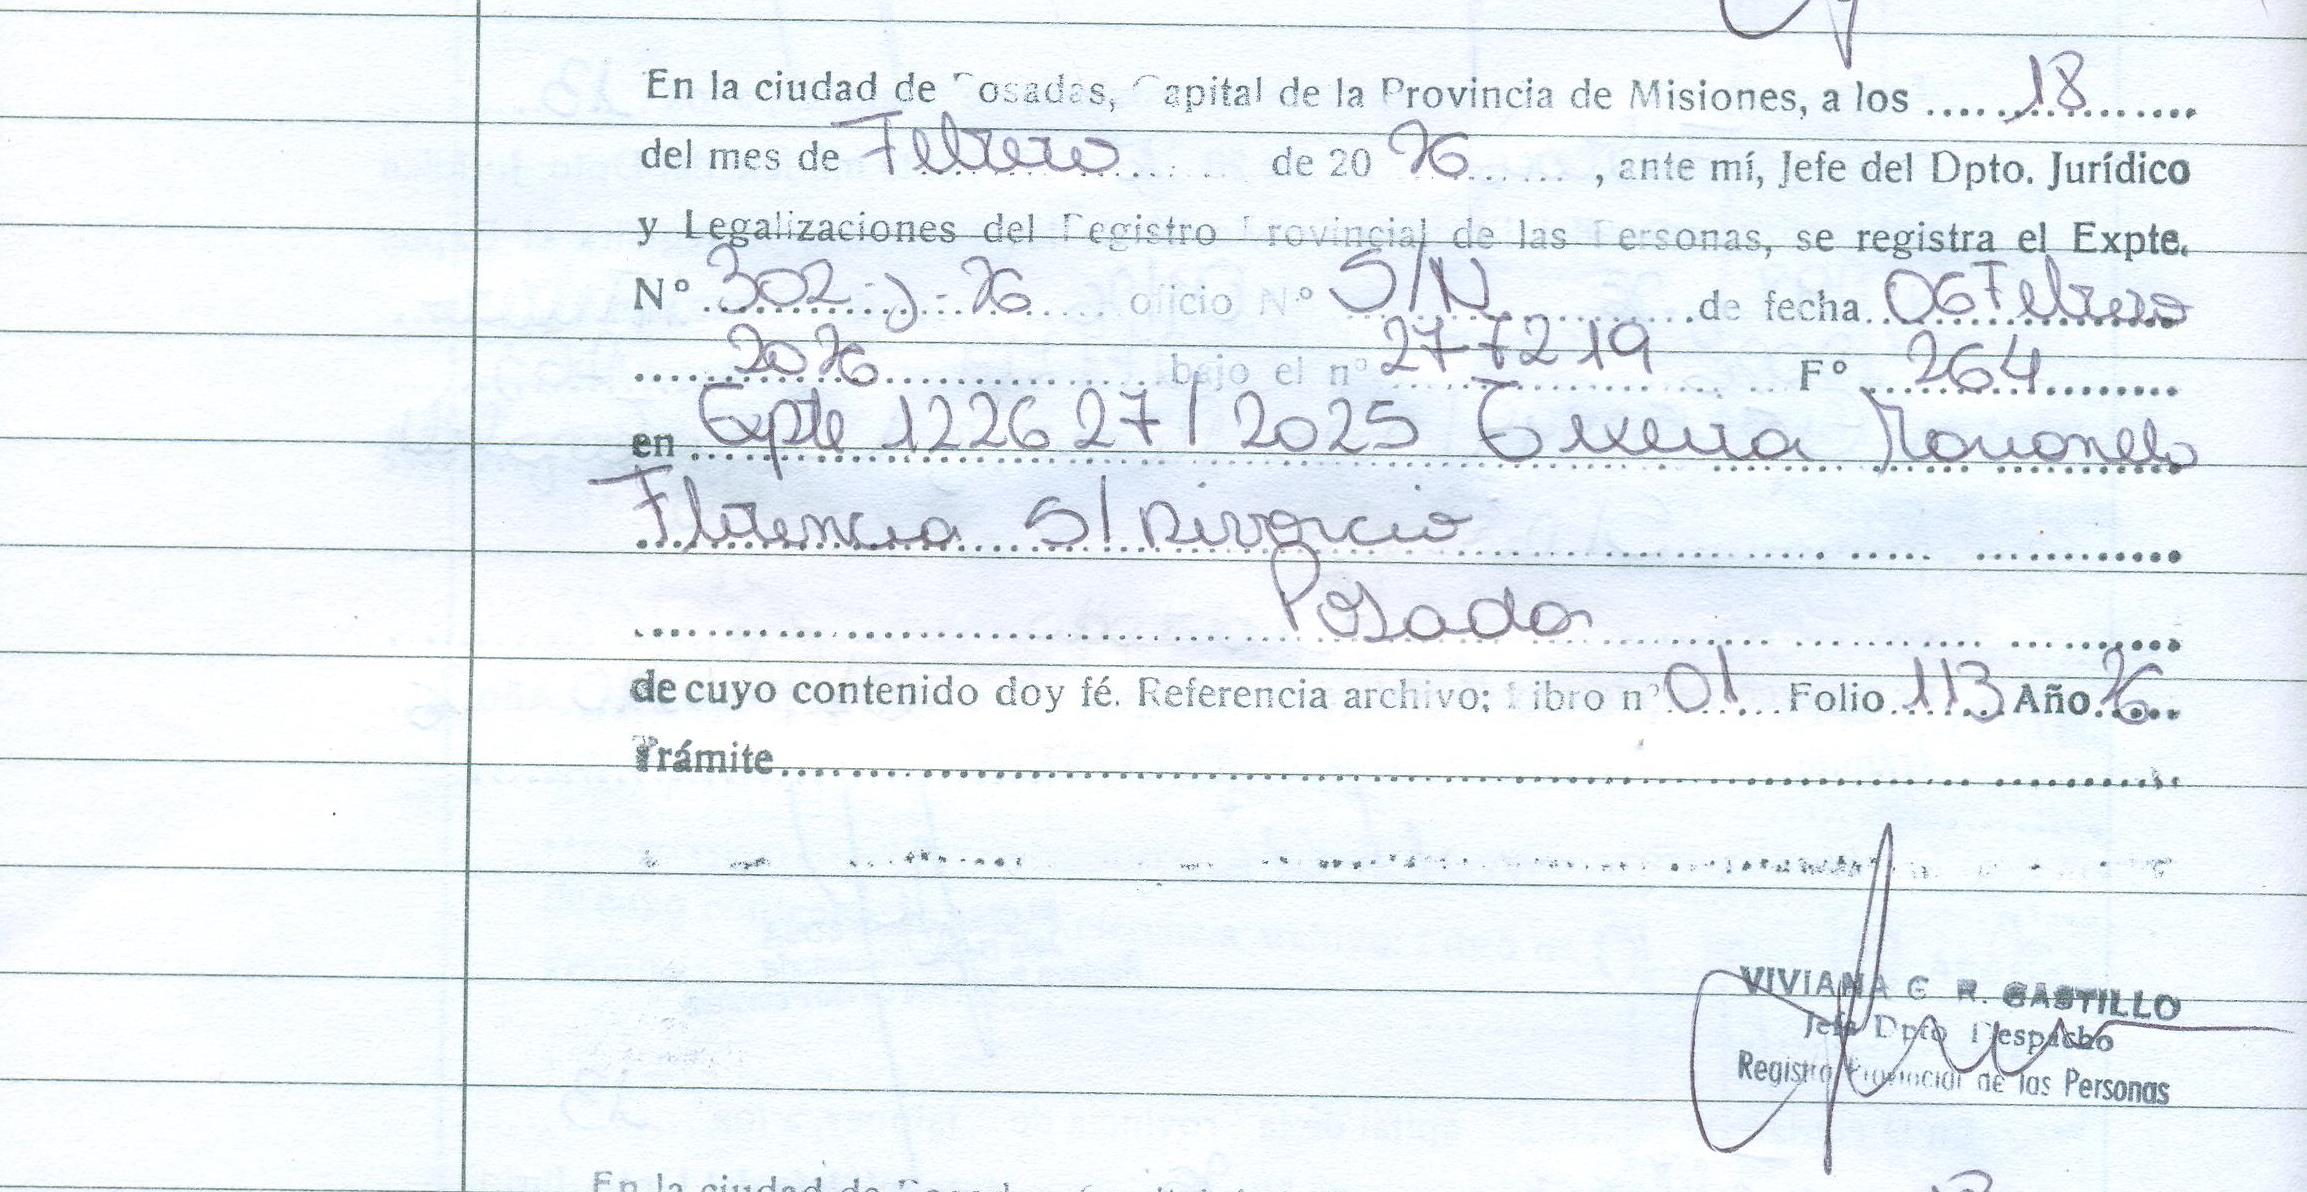 En la ciudad de Posadas, Capital de la Provincia de Misiones, a los .... 18 ....
del mes de Febrero ..... de 20 26 ...... , ante mí, Jefe del Dpto. Jurídico
y Legalizaciones del Registro Provincial de las Personas, se registra el Expte.
Nº 302-J-26 ..... oficio Nº S/N ..... de fecha 06 Febrero
..... 2026 ..... bajo el nº 277219 ..... Fº 264 .....
en Expte 122627/2025 Marianela
Florencia S/ Divorcio .....
..... Posadas .....
de cuyo contenido doy fé. Referencia archivo; Libro nº 01 .... Folio 113 Año 26
Trámite .....
VIVIANA G R. CASTILLO
Jefa Dpto Despacho
Registro Provincial de las Personas
En la ciudad de Posadas